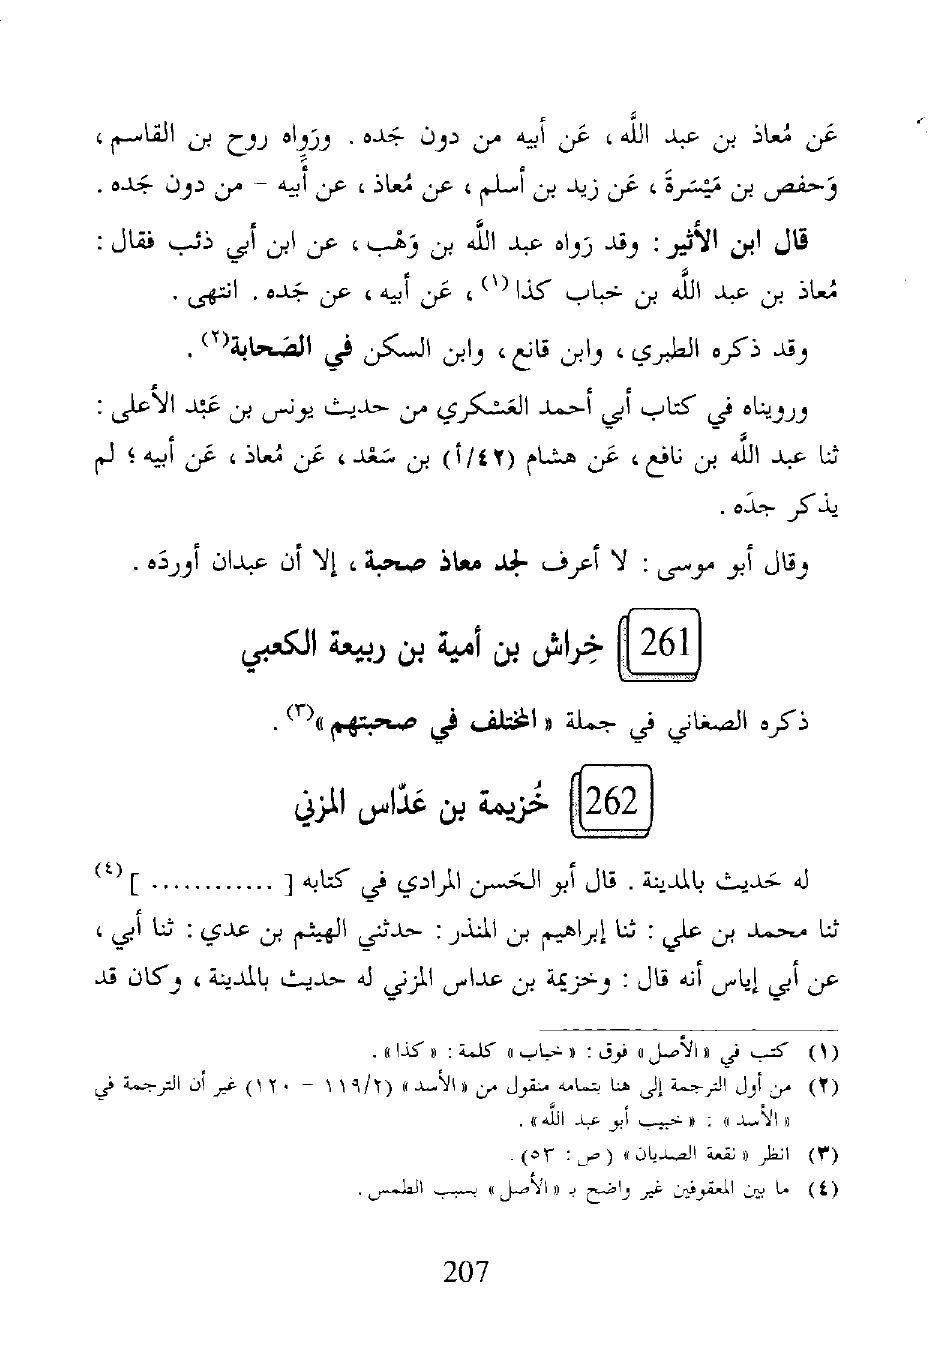 عَن مُعاذ بن عبد اللَّه ، عَن أبيه من دون جَده . ورَواه روح بن القاسم ،
وَحفص بن مَيْسَرةَ ، عَن زيد بن أسلم ، عن مُعاذ ، عن أَبيه - من دون جَده .
قال ابن الأثير : وقد رَواه عبد اللَّه بن وَهْب ، عن ابن أبي ذئب فقال :
مُعاذ بن عبد اللَّه بن خباب كذا(١) ، عَن أبيه ، عن جَده . انتهى .
وقد ذكره الطبري ، وابن قانع ، وابن السكن في الصَحابة(٢) .
ورويناه في كتاب أبي أحمد العَسْكري من حديث يونس بن عَبْد الأعلى :
ثنا عبد اللَّه بن نافع ، عَن هشام (٤٢/أ) بن سَعْد ، عَن مُعاذ ، عَن أبيه ؛ لم
يذكر جدَه .
وقال أبو موسى : لا أعرف لجد معاذ صحبة ، إلا أن عبدان أوردَه .
261 خِراش بن أمية بن ربيعة الكعبي
ذكره الصغاني في جملة « المختلف في صحبتهم »(٣) .
262 خُزيمة بن عَدّاس المزني
له حَديث بالمدينة . قال أبو الحَسن المرادي في كتابه [ ............ ](٤)
ثنا محمد بن علي : ثنا إبراهيم بن المنذر : حدثني الهيثم بن عدي : ثنا أبي ،
عن أبي إياس أنه قال : وخزيمة بن عداس المزني له حديث بالمدينة ، وكان قد
(١) كتب في « الأصل » فوق : « خباب » كلمة : « كذا » .
(٢) من أول الترجمة إلى هنا بتمامه منقول من « الأسد » (١١٩/٢ - ١٢٠) غير أن الترجمة في
« الأسد » : « خبيب أبو عبد اللَّه » .
(٣) انظر « نقعة الصديان » ( ص : ٥٣) .
(٤) ما بين المعقوفين غير واضح بـ « الأصل » بسبب الطمس .
207